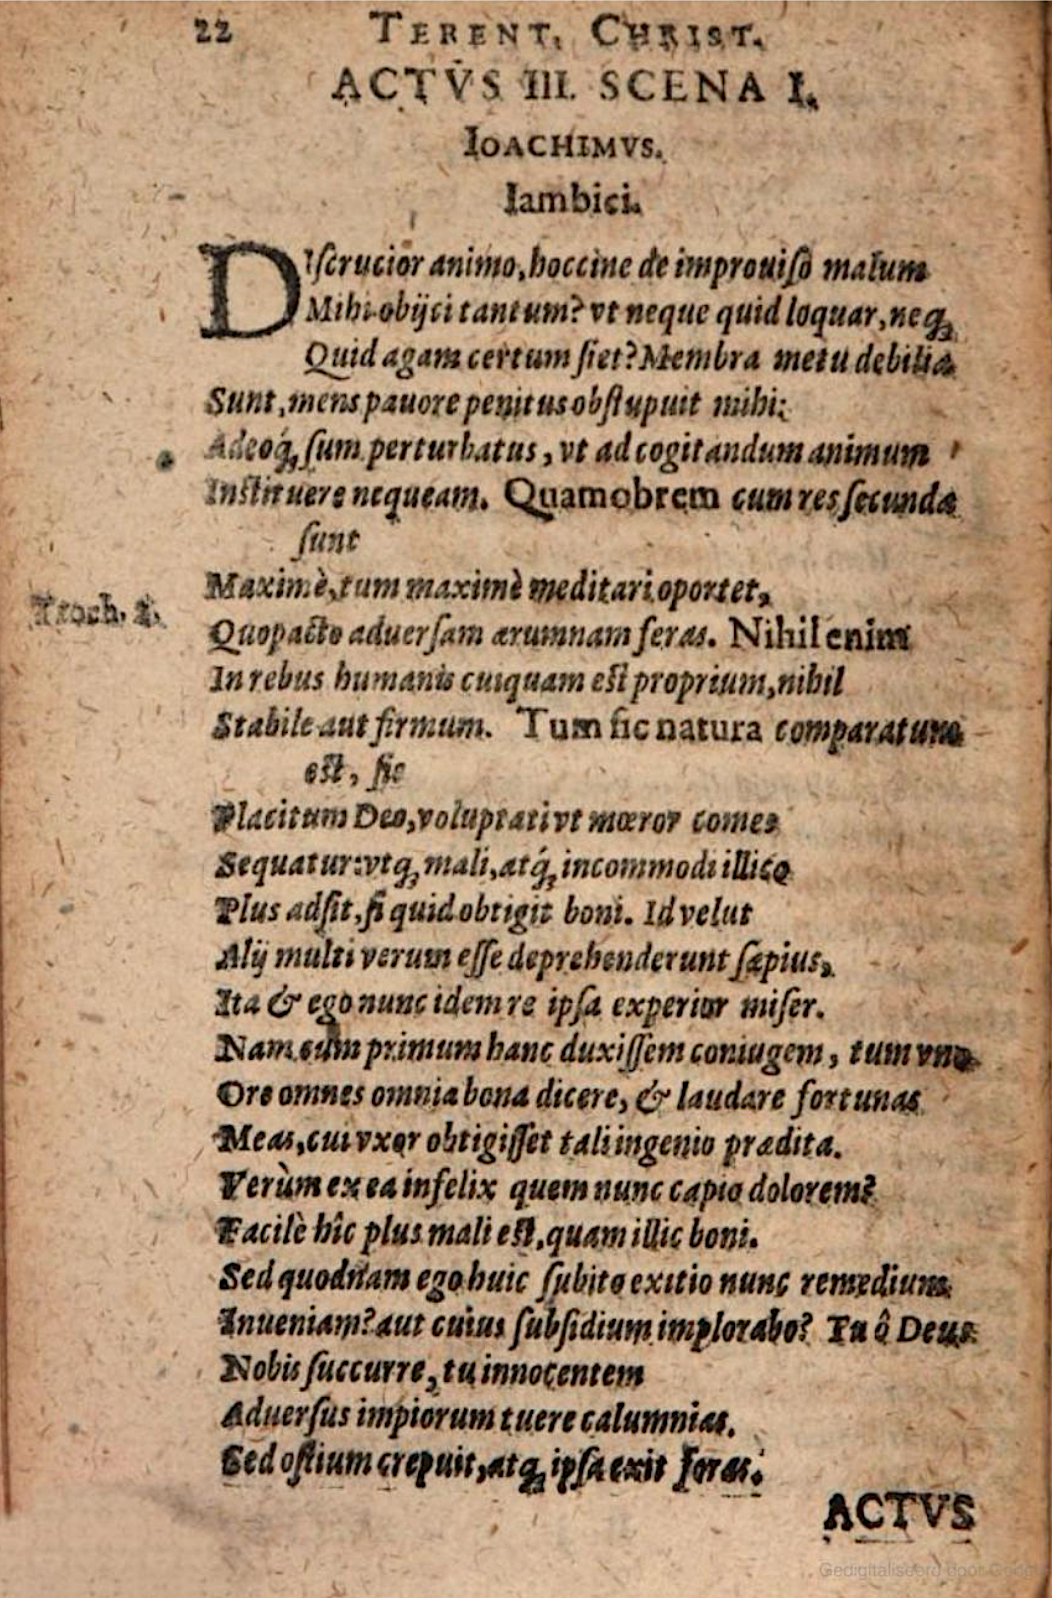 22 TERENT. CHRIST.
ACTVS III. SCENA I.
IOACHIMVS.
Iambici.
DIſcrucior animo, hoccine de improuiſo malum
Mihi obijci tantum? vt neque quid loquar, neq́;
Quid agam certum ſiet? Membra metu debilia
Sunt, mens pauore penitus obſtupuit mihi:
Adeoq́; ſum perturbatus, vt ad cogitandum animum
Inſtituere nequeam. Quamobrem cum res ſecundæ
ſunt
Maximè, tum maximè meditari oportet,
Troch. 1.
Quo pacto aduerſam ærumnam feras. Nihil enim
In rebus humanis cuiquam eſt proprium, nihil
Stabile aut firmum. Tum ſic natura comparatum
eſt, ſic
Placitum Deo, voluptati vt mœror comes
Sequatur: vtq́; mali, atq́; incommodi illico
Plus adſit, ſi quid obtigit boni. Id velut
Alij multi verum eſſe deprehenderunt ſæpius,
Ita & ego nunc idem re ipſa experior miſer.
Nam cùm primum hanc duxiſſem coniugem, tum vno
Ore omnes omnia bona dicere, & laudare fortunas
Meas, cui vxor obtigiſſet tali ingenio prædita.
Verùm ex ea infelix quem nunc capio dolorem?
Facilè hîc plus mali eſt, quam illic boni.
Sed quodnam ego huic ſubito exitio nunc remedium
Inueniam? aut cuius ſubſidium implorabo? Tu ô Deus
Nobis ſuccurre, tu innocentem
Aduerſus impiorum tuere calumnias.
Sed oſtium crepuit, atq́; ipſa exit foras.
ACTVS
Gedigitaliseerd door Google